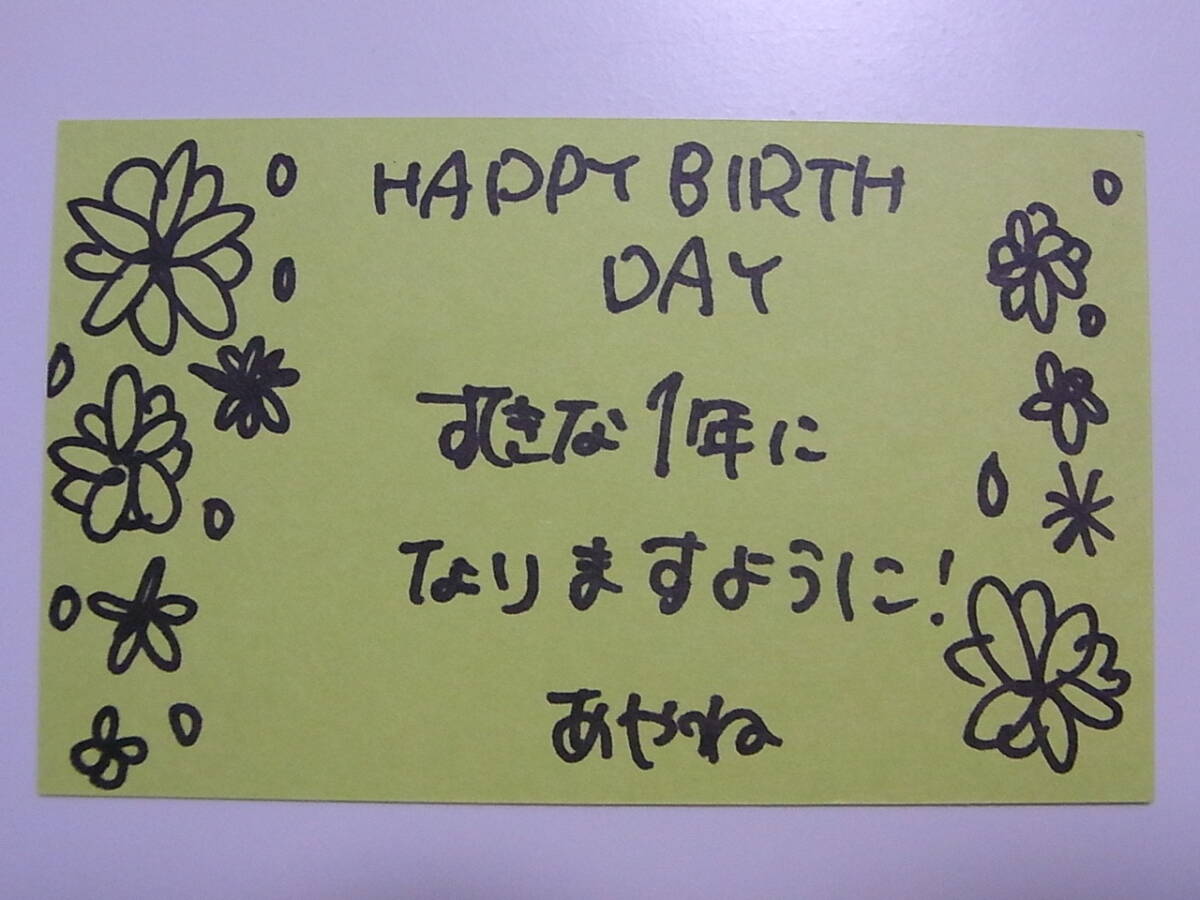 HAPPY BIRTH
DAY
すてきな1年に
なりますように!
あやね